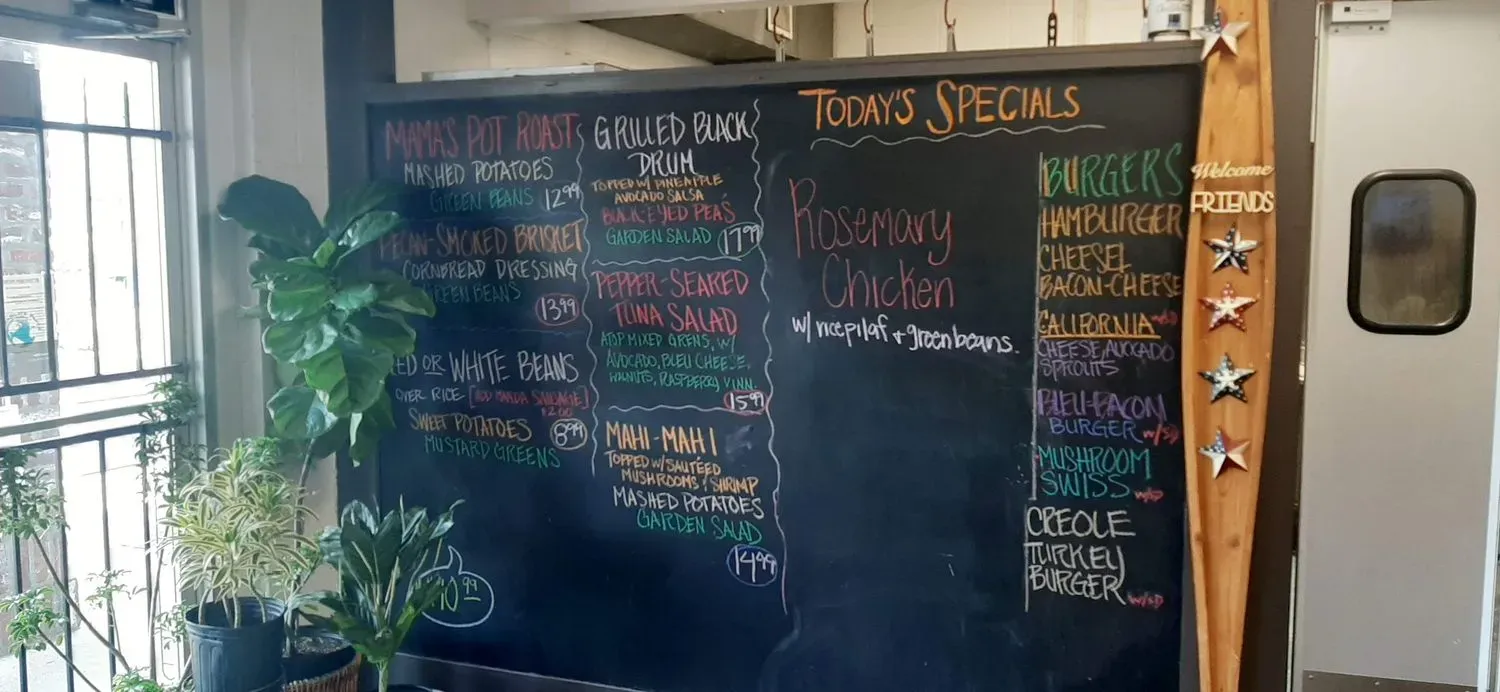 MAMA'S POT ROAST
MASHED POTATOES
GREEN BEANS 12.99
PECAN-SMOKED BRISKET
CORNBREAD DRESSING
GREEN BEANS
13.99
RED OR WHITE BEANS
OVER RICE
$2.00
SWEET POTATOES 8.99
MUSTARD GREENS
10.99
GRILLED BLACK
DRUM
TOPPED W/ PINEAPPLE
AVOCADO SALSA
BLACK-EYED PEAS
GARDEN SALAD 17.99
PEPPER-SEARED
TUNA SALAD
ATOP MIXED GRENS, W/
AVOCADO, BLEU CHEESE,
WALNUTS, RASPBERRY VINN.
15.99
MAHI-MAHI
TOPPED W/ SAUTÉED
MUSHROOMS & SHRIMP
MASHED POTATOES
GARDEN SALAD
14.99
TODAY'S SPECIALS
Rosemary
Chicken
w/ rice pilaf + green beans.
BURGERS
HAMBURGER
CHEESE
BACON-CHEESE
CALIFORNIA
CHEESE, AVOCADO
SPROUTS
BLEU-BACON
BURGER
MUSHROOM
SWISS
CREOLE
TURKEY
BURGER
Welcome
FRIENDS